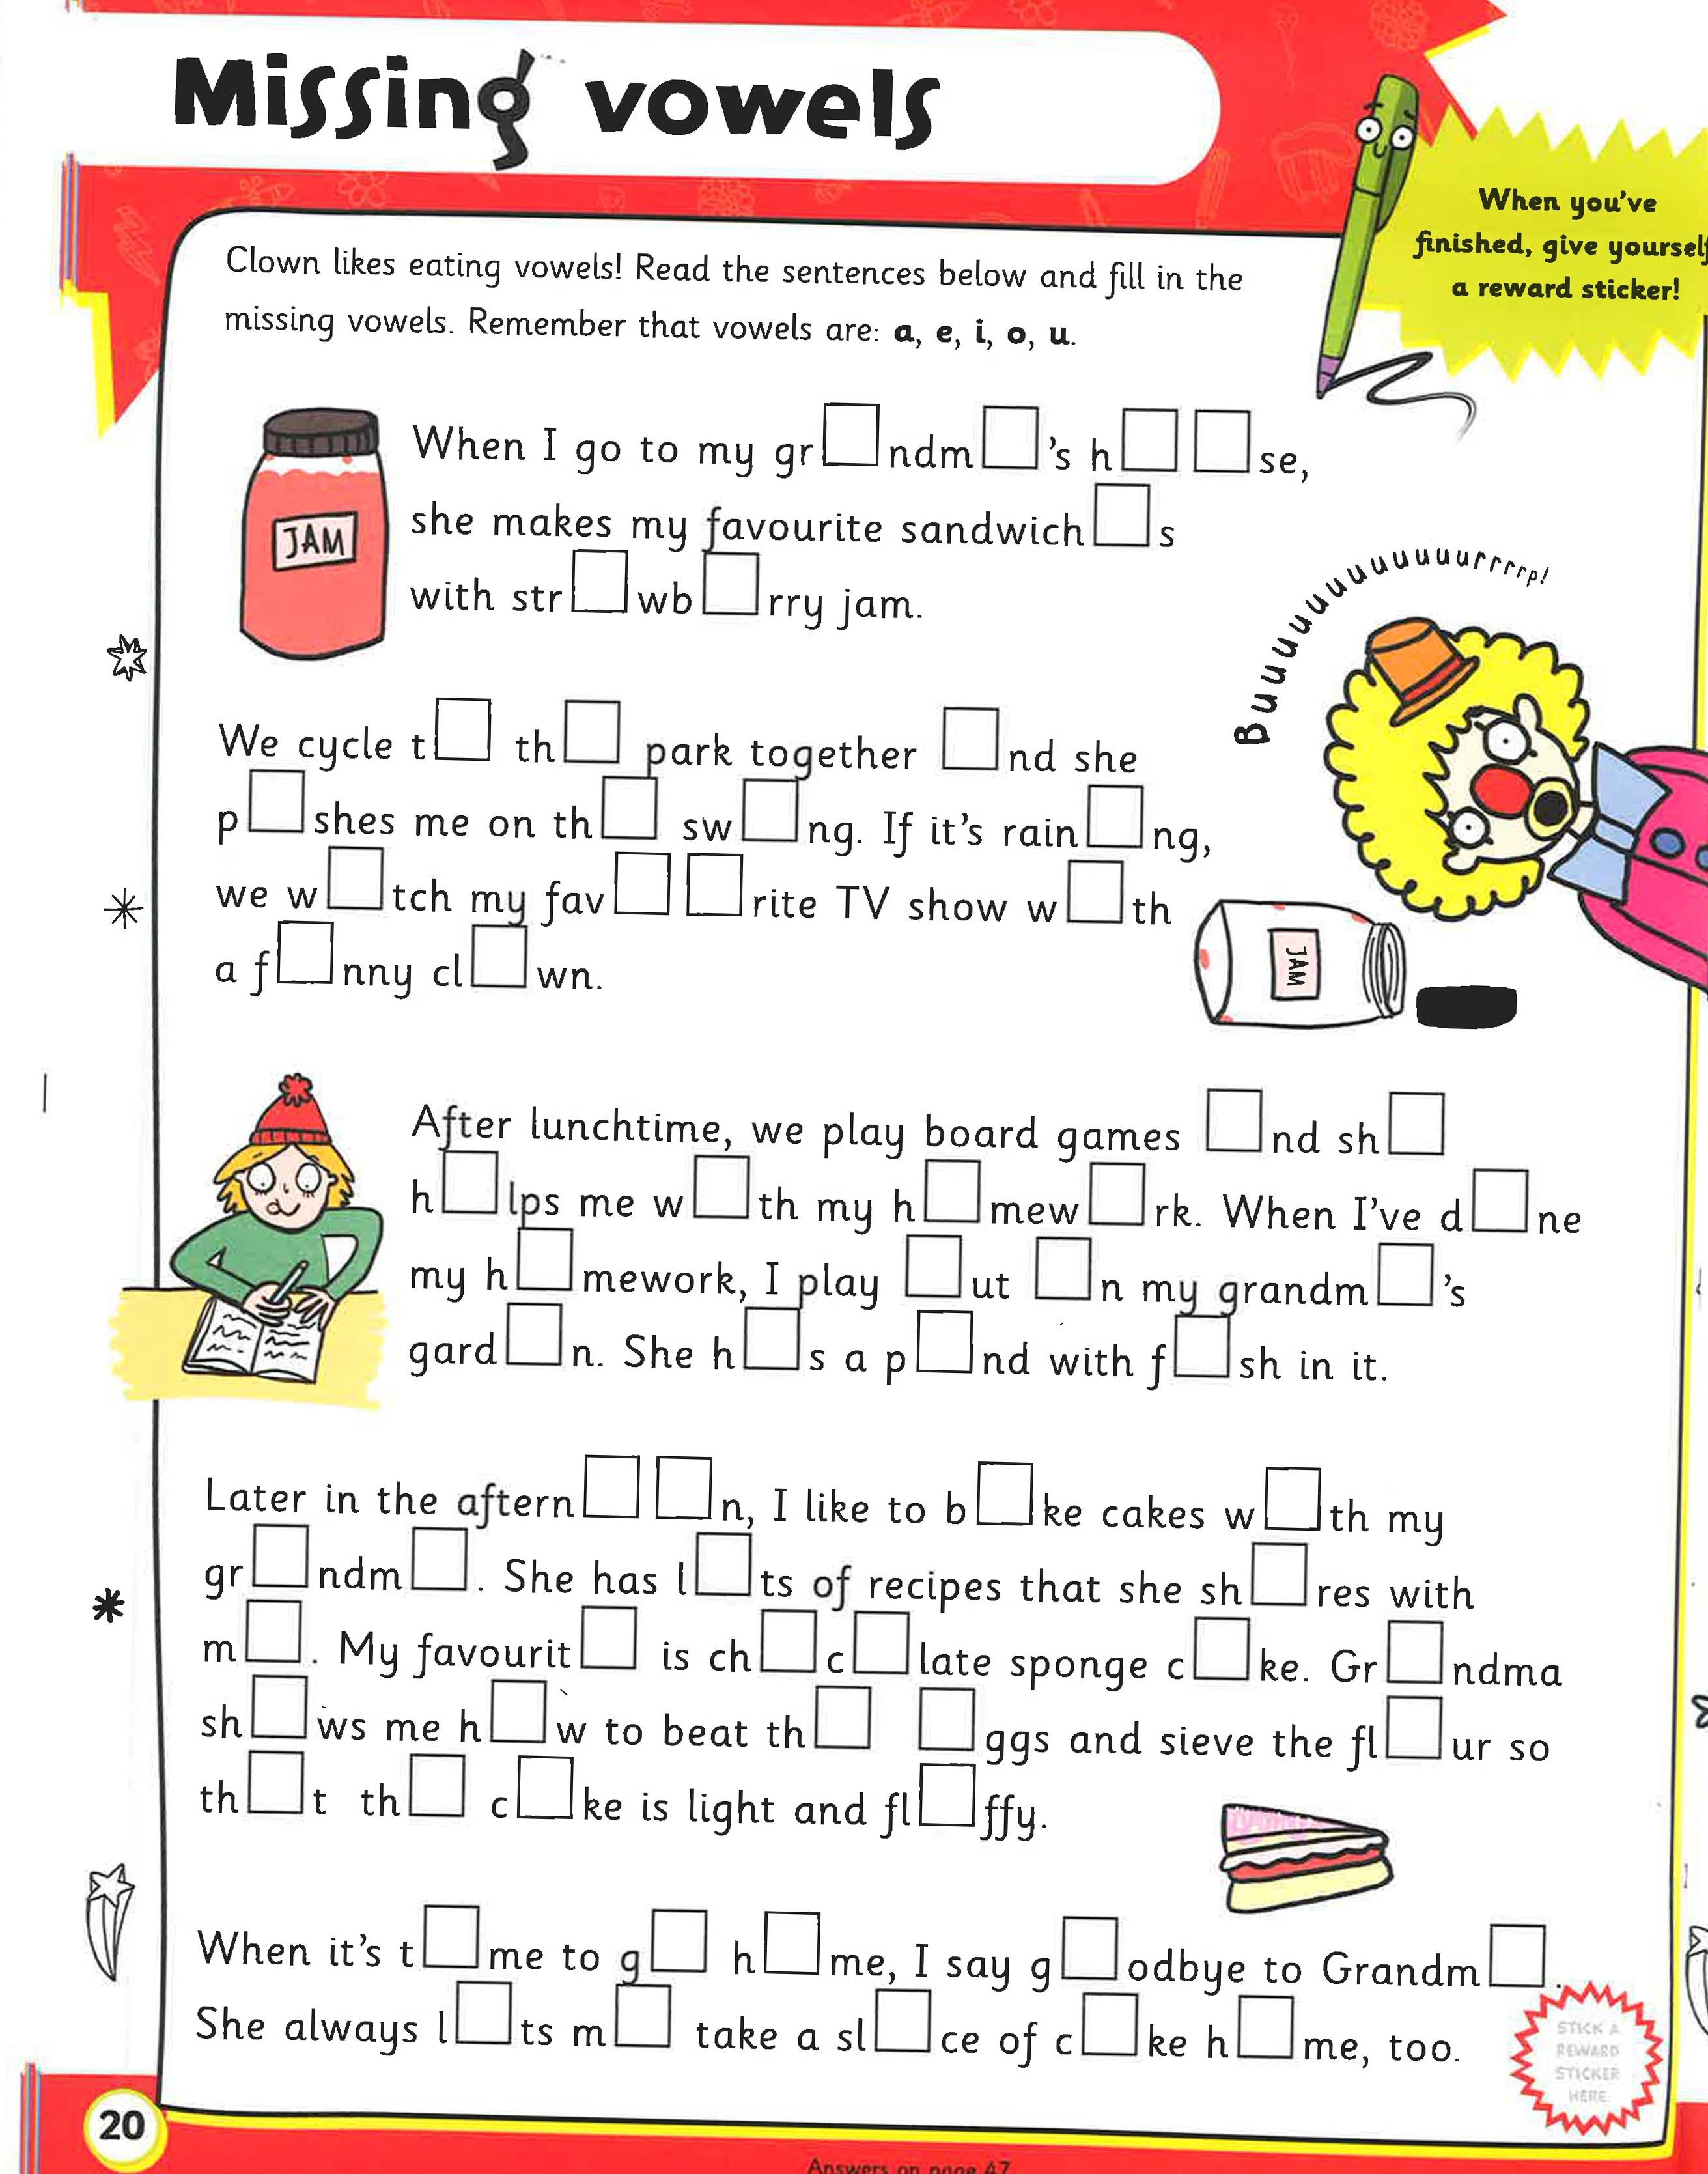 Missing vowels
When you've
finished, give yourself
a reward sticker!
Clown likes eating vowels! Read the sentences below and fill in the
missing vowels. Remember that vowels are: a, e, i, o, u.
JAM
When I go to my gr□ndm□'s h□□se,
she makes my favourite sandwich□s
with str□wb□rry jam.
Buuuuuuuuuuuuuurrrrp!
We cycle t□ th□ park together □nd she
p□shes me on th□ sw□ng. If it's rain□ng,
we w□tch my fav□□rite TV show w□th
a f□nny cl□wn.
JAM
After lunchtime, we play board games □nd sh□
h□lps me w□th my h□mew□rk. When I've d□ne
my h□mework, I play □ut □n my grandm□'s
gard□n. She h□s a p□nd with f□sh in it.
Later in the aftern□□n, I like to b□ke cakes w□th my
gr□ndm□. She has l□ts of recipes that she sh□res with
m□. My favourit□ is ch□c□late sponge c□ke. Gr□ndma
sh□ws me h□w to beat th□ □ggs and sieve the fl□ur so
th□t th□ c□ke is light and fl□ffy.
When it's t□me to g□ h□me, I say g□odbye to Grandm□.
She always l□ts m□ take a sl□ce of c□ke h□me, too.
STICK A
REWARD
STICKER
HERE
20
Answers on page 47